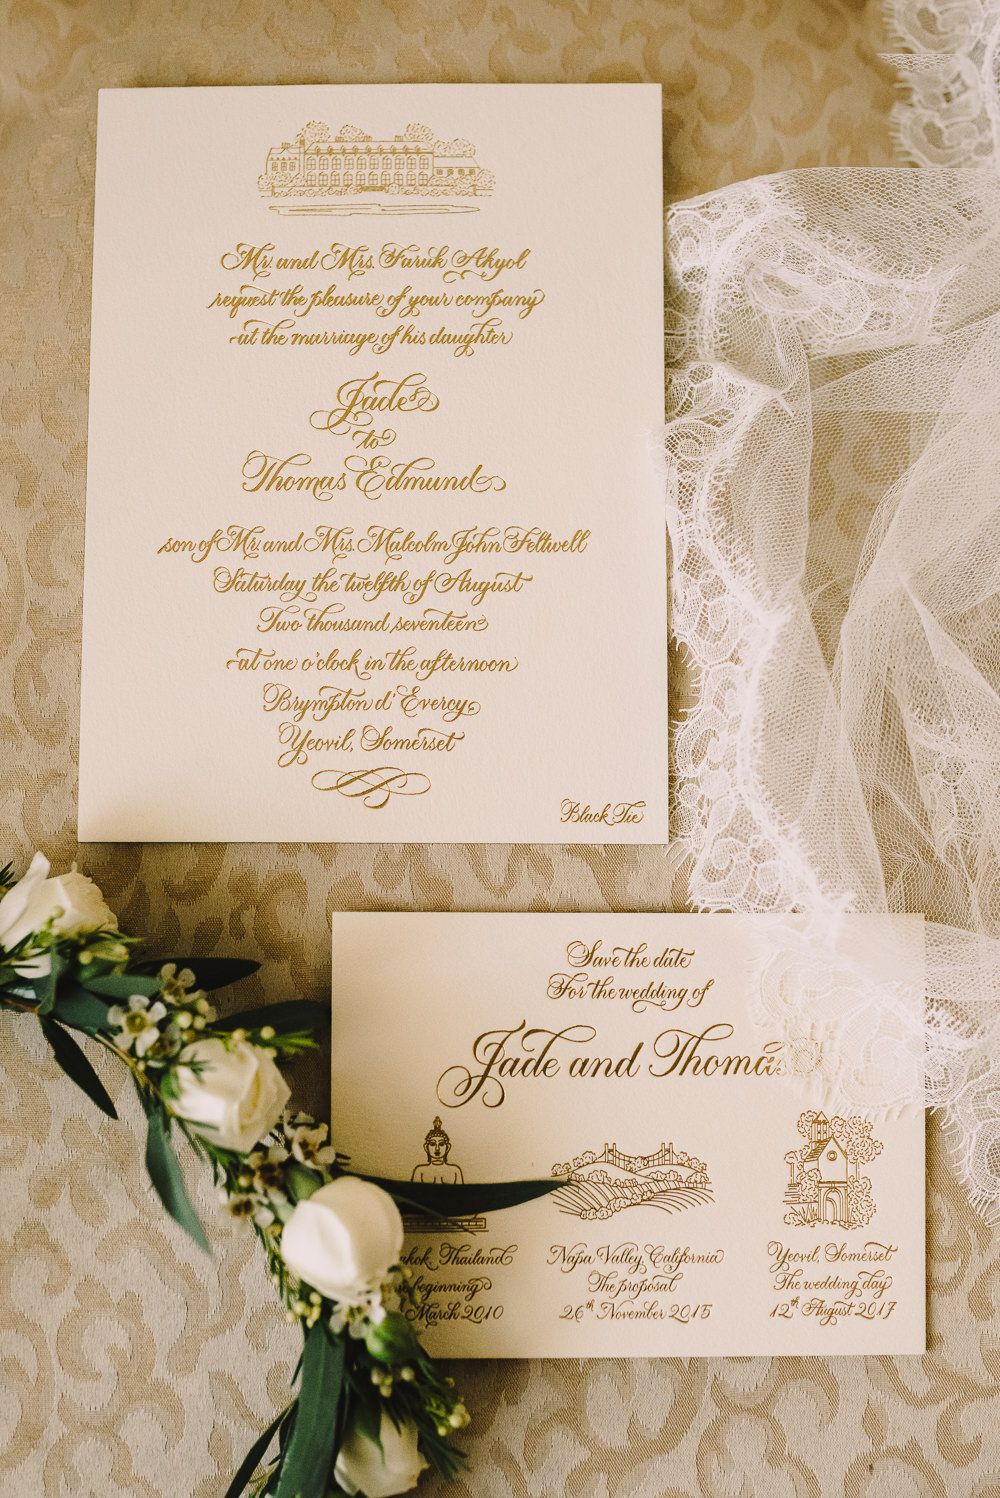 Mr. and Mrs. Faruk Akyol
request the pleasure of your company
at the marriage of his daughter
Jade
to
Thomas Edmund
son of Mr. and Mrs. Malcolm John Feltwell
Saturday the twelfth of August
Two thousand seventeen
at one o'clock in the afternoon
Brympton d'Evercy
Yeovil, Somerset
Black Tie
Save the date
For the wedding of
Jade and Thomas
Thailand
beginning
March 2010
Napa Valley, California
The proposal
26th November 2015
Yeovil, Somerset
The wedding day
12th August 2017